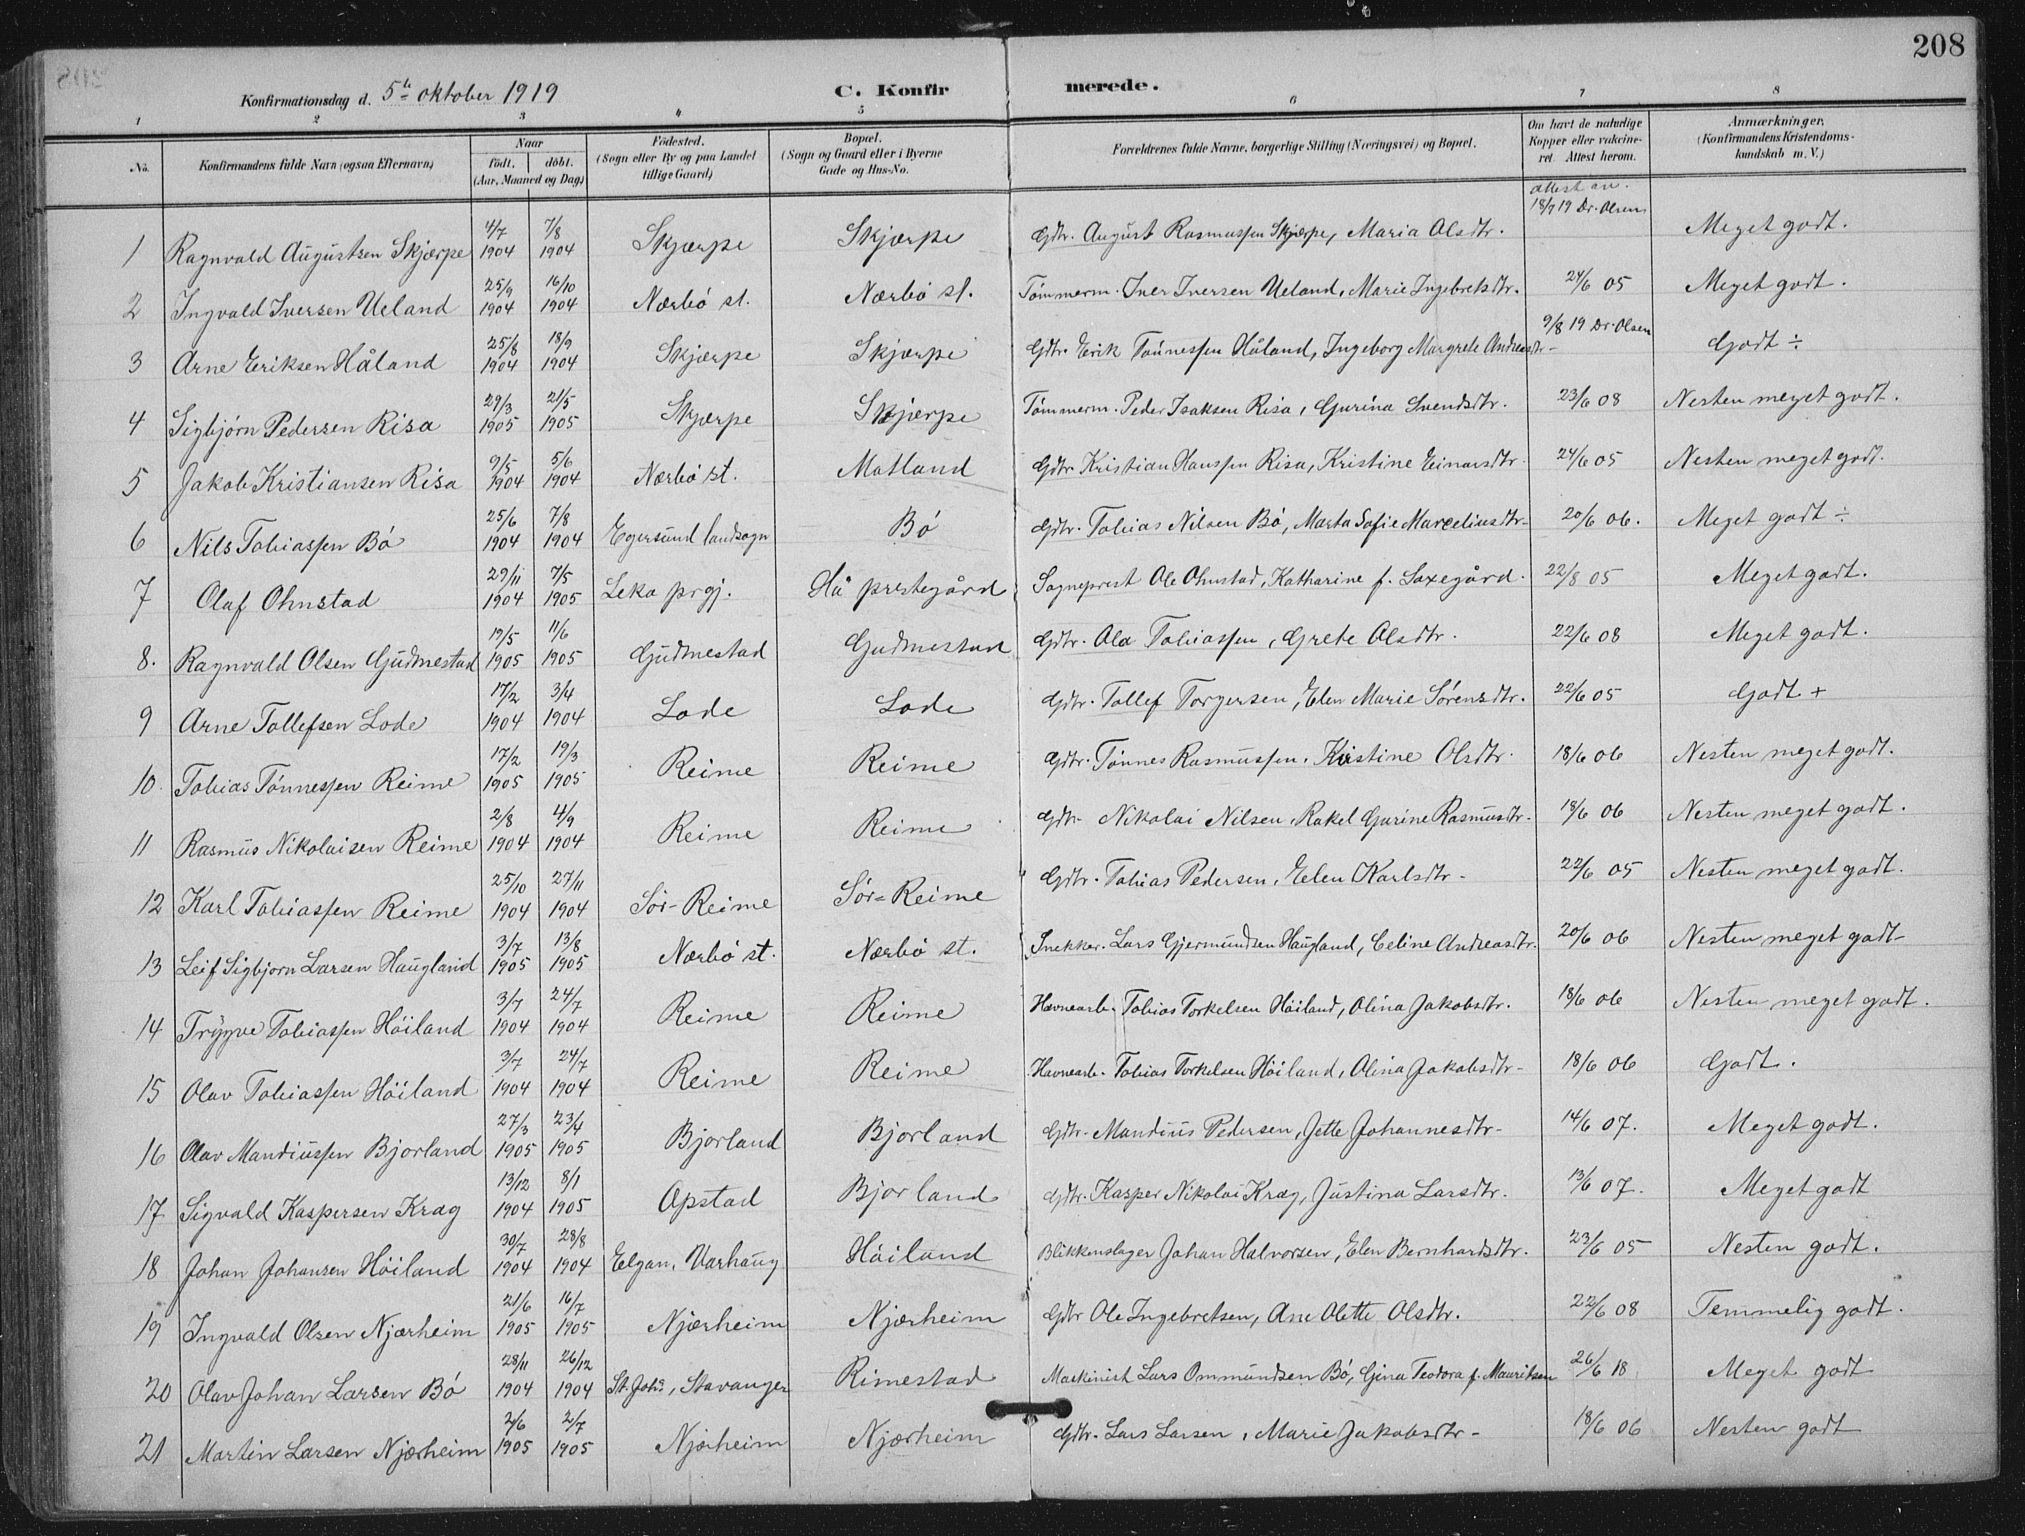 208
Konfirmationsdag d. 5te oktober 1919 C. Konfirmerede.
1 2 3 4 5 6 7 8
No. Konfirmandens fulde Navn (ogsaa Efternavn) Naar født. døbt. (Aar, Maaned og Dag) Fødested. (Sogn eller By og paa Landet tillige Gaard) Bopæl. (Sogn og Gaard eller i Byerne Gade og Hus-No. Forældrenes fulde Navne, borgerlige Stilling (Næringsvei) og Bopæl. Om havt de naturlige Kopper eller vakcineret. Attest herom. Anmærkninger. (Konfirmandens Kristendomskundskab m. V.)
1 Ragnvald Augustsen Skjærpe 4/7 1904 7/8 1904 Skjærpe Skjærpe Gdtr. August Rasmussen Skjærpe, Maria Olsdtr. attest av. 18/9 19 Dr. Olsen Meget godt.
2 Ingvald Iversen Ueland 25/9 1904 16/10 1904 Nærbø st. Nærbø st. Tømmerm. Iver Iversen Ueland, Marie Ingebretsdtr. 24/6 05 Meget godt.
3 Arne Eriksen Håland 25/8 1904 18/9 1904 Skjærpe Skjærpe Gdtr. Erik Tønnessen Håland, Ingeborg Margrete Andreasdtr- 9/8 19 Dr. Olsen Godt ÷
4 Sigbjørn Pedersen Risa 29/3 1905 21/5 1905 Skjærpe Skjærpe Tømmerm. Peder Isaksen Risa, Gurina Svendsdtr. 23/6 08 Nesten meget godt.
5 Jakob Kristiansen Risa 9/5 1904 5/6 1904 Nærbø st. Motland Gdtr Kristian Hanssen Risa, Kristine Einarsdtr. 24/6 05 Nesten meget godt.
6 Nils Tobiassen Bø 25/6 1904 7/8 1904 Egersund landsogn Bø Gdtr. Tobias Nilsen Bø, Marta Sofie Marceliusdtr- 20/6 06. Meget godt ÷
7 Olaf Ohnstad 29/11 1904 7/5 1905 Leka prgj. Hå prestegård Sogneprest Ole Ohnstad, Katharine f. Saxegård. 22/8 05 Meget godt.
8. Ragnvald Olsen Gudmestad 19/5 1905 11/6 1905 Gudmestad Gudmestad Gdtr. Ola Tobiassen, Grete Olsdtr. 22/6 08 Meget godt.
9 Arne Tollefsen Lode 17/2 1904 3/4 1904 Lode Lode Gdtr. Tollef Torgersen, Elen Marie Sørensdtr. 22/6 05 Godt +
10. Tobias Tønnessen Reime 17/2 1905 19/3 1905 Reime Reime Gdtr. Tønnes Rasmussen, Kristine Olsdtr. 18/6 06 Nesten meget godt.
11 Rasmus Nikolaisen Reime 2/8 1904 4/9 1904 Reime Reime Gdtr- Nikolai Nilsen, Rakel Gurine Rasmusdtr. 18/6 06 Nesten meget godt.
12 Karl Tobiassen Reime 25/10 1904 27/11 1904 Sør-Reime Sør-Reime Gdtr. Tobias Pedersen, Elen Karlsdtr- 22/6 05 Nesten meget godt.
13 Leif Sigbjørn Larsen Haugland 3/7 1905 13/8 1905 Nærbø st. Nærbø st. Snekker. Lars Gjermundsen Haugland, Celine Andreasdtr. 20/6 06 Nesten meget godt-
14 Trygve Tobiassen Høiland 3/7 1904 24/7 1904 Reime Reime Havnearb. Tobias Torkelsen Høiland, Olina Jakobsdtr. 18/6 06 Nesten meget godt.
15 Olav Tobiassen Høiland 3/7 1904 24/7 1904 Reime Reime Havnearb. Tobias Torkelsen Høiland, Olina Jakobsdtr- 18/6 06 Godt.
16 Olav Mandiussen Bjorland 27/3 1905 23/4 1905 Bjorland Bjorland Gdtr- Mandius Pedersen, Jette Johannesdtr- 14/6 07. Meget godt.
17 Sigvald Kaspersen Krag 13/12 1904 8/1 1905 Opstad Bjorland Gdtr. Kasper Nikolai Krag, Justina Larsdtr. 13/6 07. Meget godt
18 Johan Johansen Høiland 30/7 1904 28/8 1904 Elgan, Varhaug Høiland Blikkenslager Johan Halvorsen, Elen Bernhardsdtr. 23/6 05 Nesten godt.
19 Ingvald Olsen Njærheim 21/6 1905 16/7 1905 Njærheim Njærheim Gdtr Ole Ingebretsen, Ane Olette Olsdtr. 22/6 08 Temmelig godt.
20 Olav Johan Larsen Bø 28/11 1904 26/12 1904 St. Johs, Stavanger Rimestad Maskinist Lars Ommundsen Bø, Gina Teodora f. Mauritsen 26/6 18 Meget godt
21 Martin Larsen Njærheim 2/6 1905 2/7 1905 Njærheim Njærheim Gdtr. Lars Larsen, Marie Jakobsdtr- 18/6 06 Nesten godt